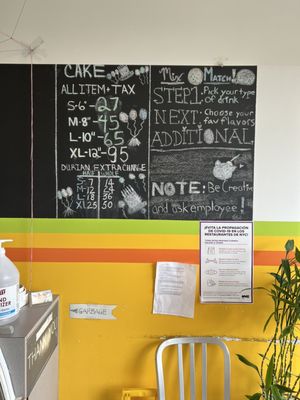 CAKE
ALL ITEM + TAX
S-6"-27
M-8"-45
L-10"-65
XL-12"-95
DURIAN EXTRA CHARGE
HALF WHOLE
S 7 14
M 12 24
L 18 36
XL 25 50
Mix & Match!
STEP 1: Pick your type
of drink
NEXT: Choose your
fav flavors
ADDITIONAL:
NOTE: Be Creative
and ask employee!
¡EVITA LA PROPAGACIÓN
DE COVID-19 EN LOS
RESTAURANTES DE NYC!
GARBAGE
THANK YOU